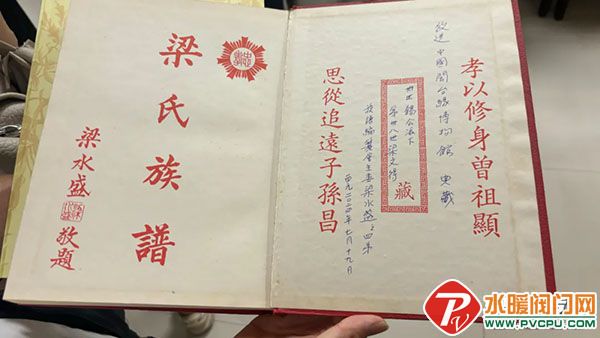 孝以修身曾祖顯
致送 中國閩台緣博物館 典藏
第廿八世梁文得
藏
族譜編纂會主委梁水盛之四弟
西元二〇二四年七月十九日
思從追遠子孫昌
梁氏族譜
梁水盛 敬題
水暖阀门网
PV
WWW.PVCPU.COM